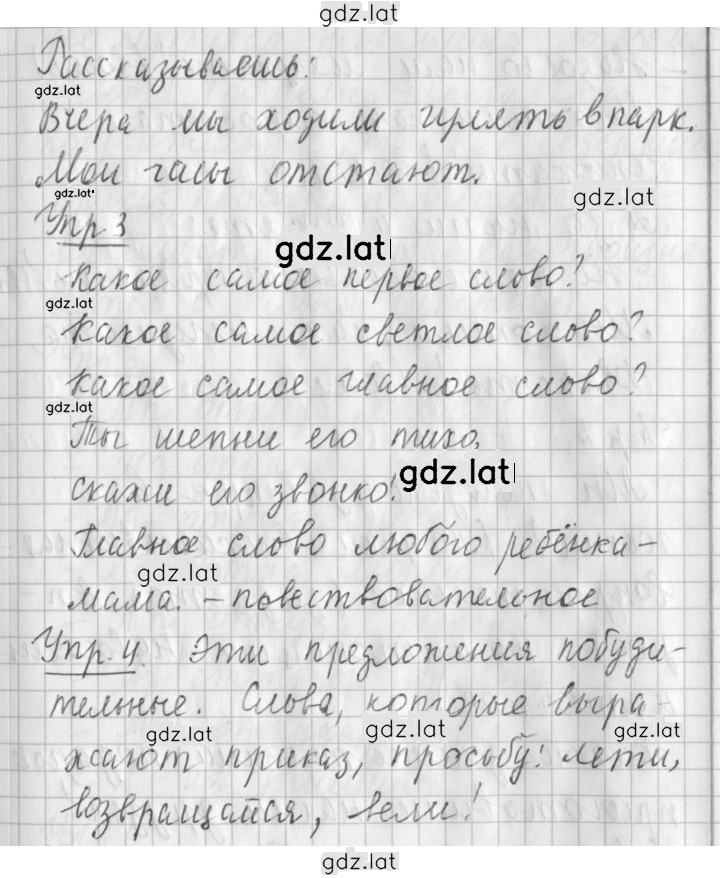 gdz.lat
Рассказываешь:
gdz.lat
Вчера мы ходили гулять в парк.
Мои часы отстают.
gdz.lat
gdz.lat
Упр 3
gdz.lat
Какое самое первое слово?
gdz.lat
Какое самое светлое слово?
Какое самое главное слово?
gdz.lat
Ты шепни его тихо,
gdz.lat
скажи его звонко!
Главное слово любого ребёнка-
gdz.lat
мама. - повествовательное
Упр. 4. Эти предложения побуди-
gdz.lat
тельные. Слова, которые выра-
gdz.lat
gdz.lat
gdz.lat
жают приказ, просьбу: лети,
возвращайся, вели!
gdz.lat